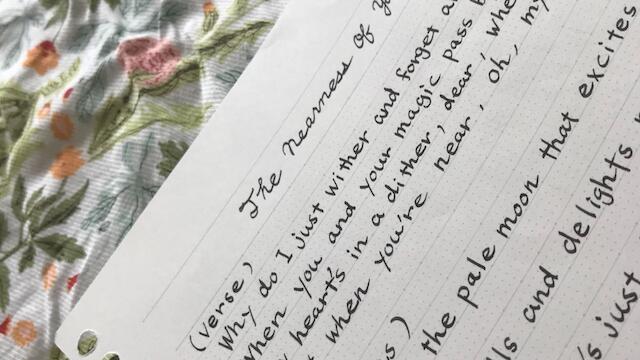 The nearness of
(verse)
Why do I just wither and forget
When you and your magic pass
heart's in a dither, dear, when
when you're near, oh, my
the pale moon that excites
and delights
just